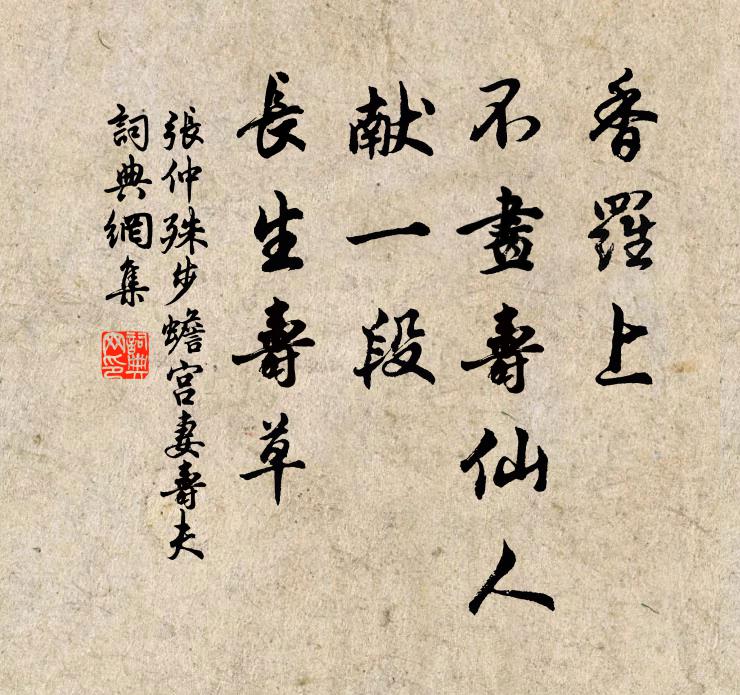 香羅上
不畫壽仙人
献一段
長生壽草
張仲殊步蟾宫妻壽夫
詞典網集
詞典网印